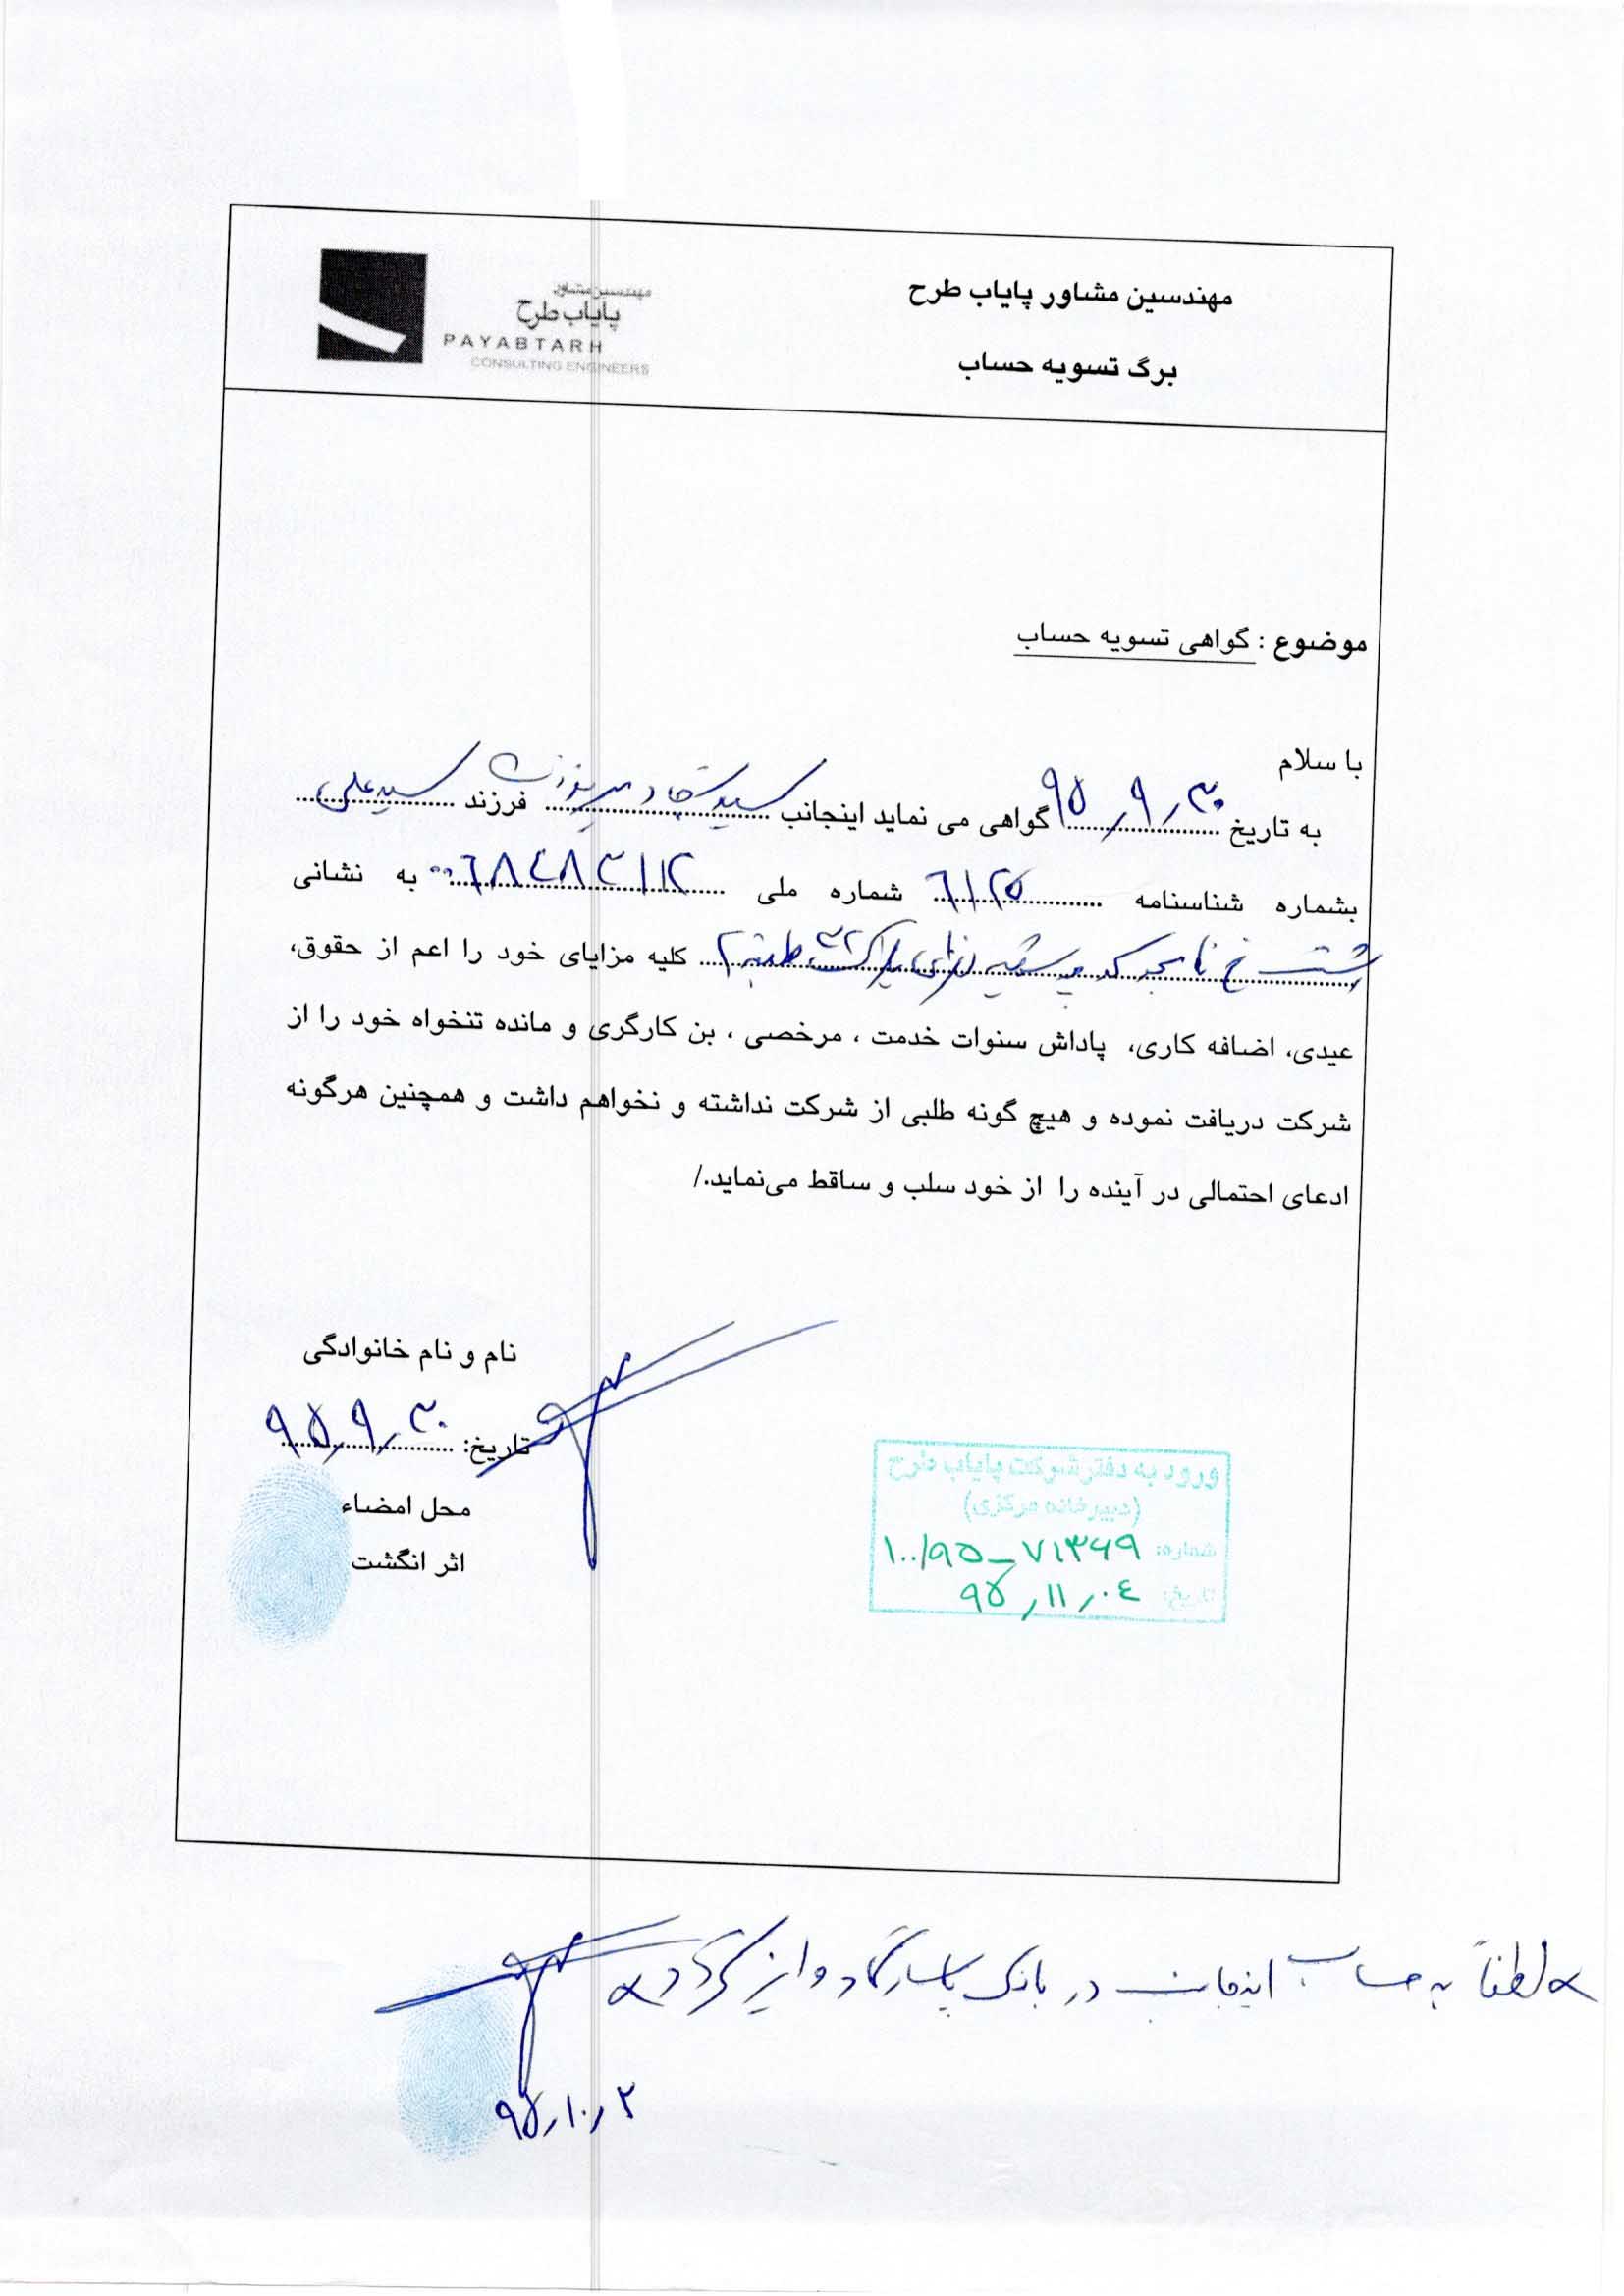 مهندسین مشاور پایاب طرح
برگ تسویه حساب
مهندسین مشاور
پایاب طرح
PAYABTARH
CONSULTING ENGINEERS
موضوع : گواهی تسویه حساب
با سلام
به تاریخ ۹۵/۹/۳۰ گواهی می نماید اینجانب سید فرزند سیدعلی
بشماره شناسنامه ۶۱۲۵ شماره ملی ۰۰۶۸۴۸۳۱۱۲ به نشانی
رشت خ طبقه ۲ کلیه مزایای خود را اعم از حقوق،
عیدی، اضافه کاری، پاداش سنوات خدمت ، مرخصی ، بن کارگری و مانده تنخواه خود را از
شرکت دریافت نموده و هیچ گونه طلبی از شرکت نداشته و نخواهم داشت و همچنین هرگونه
ادعای احتمالی در آینده را از خود سلب و ساقط می‌نماید./
نام و نام خانوادگی
تاریخ: ۹۵/۹/۳۰
محل امضاء
اثر انگشت
ورود به دفتر شرکت پایاب طرح
(دبیرخانه مرکزی)
شماره: ۱۰۰/۹۵-۷۱۳۶۹
تاریخ: ۹۵/۱۱/۰۴
لطفاً به حساب اینجانب در بانک پاسارگاد واریز گردد
۹۵/۱۰/۲